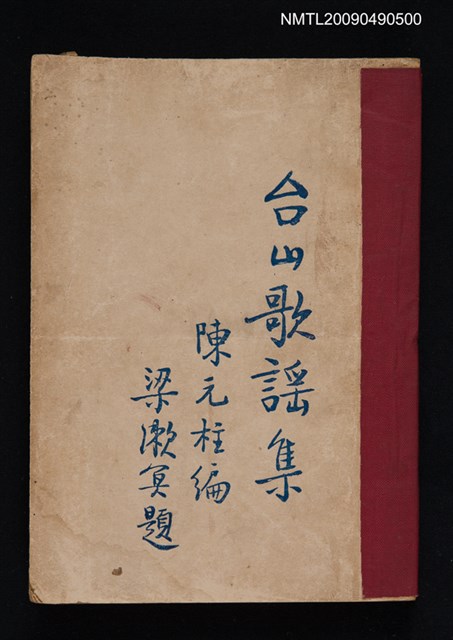 NMTL20090490500
台山歌謡集
陳元柱編
梁漱冥題